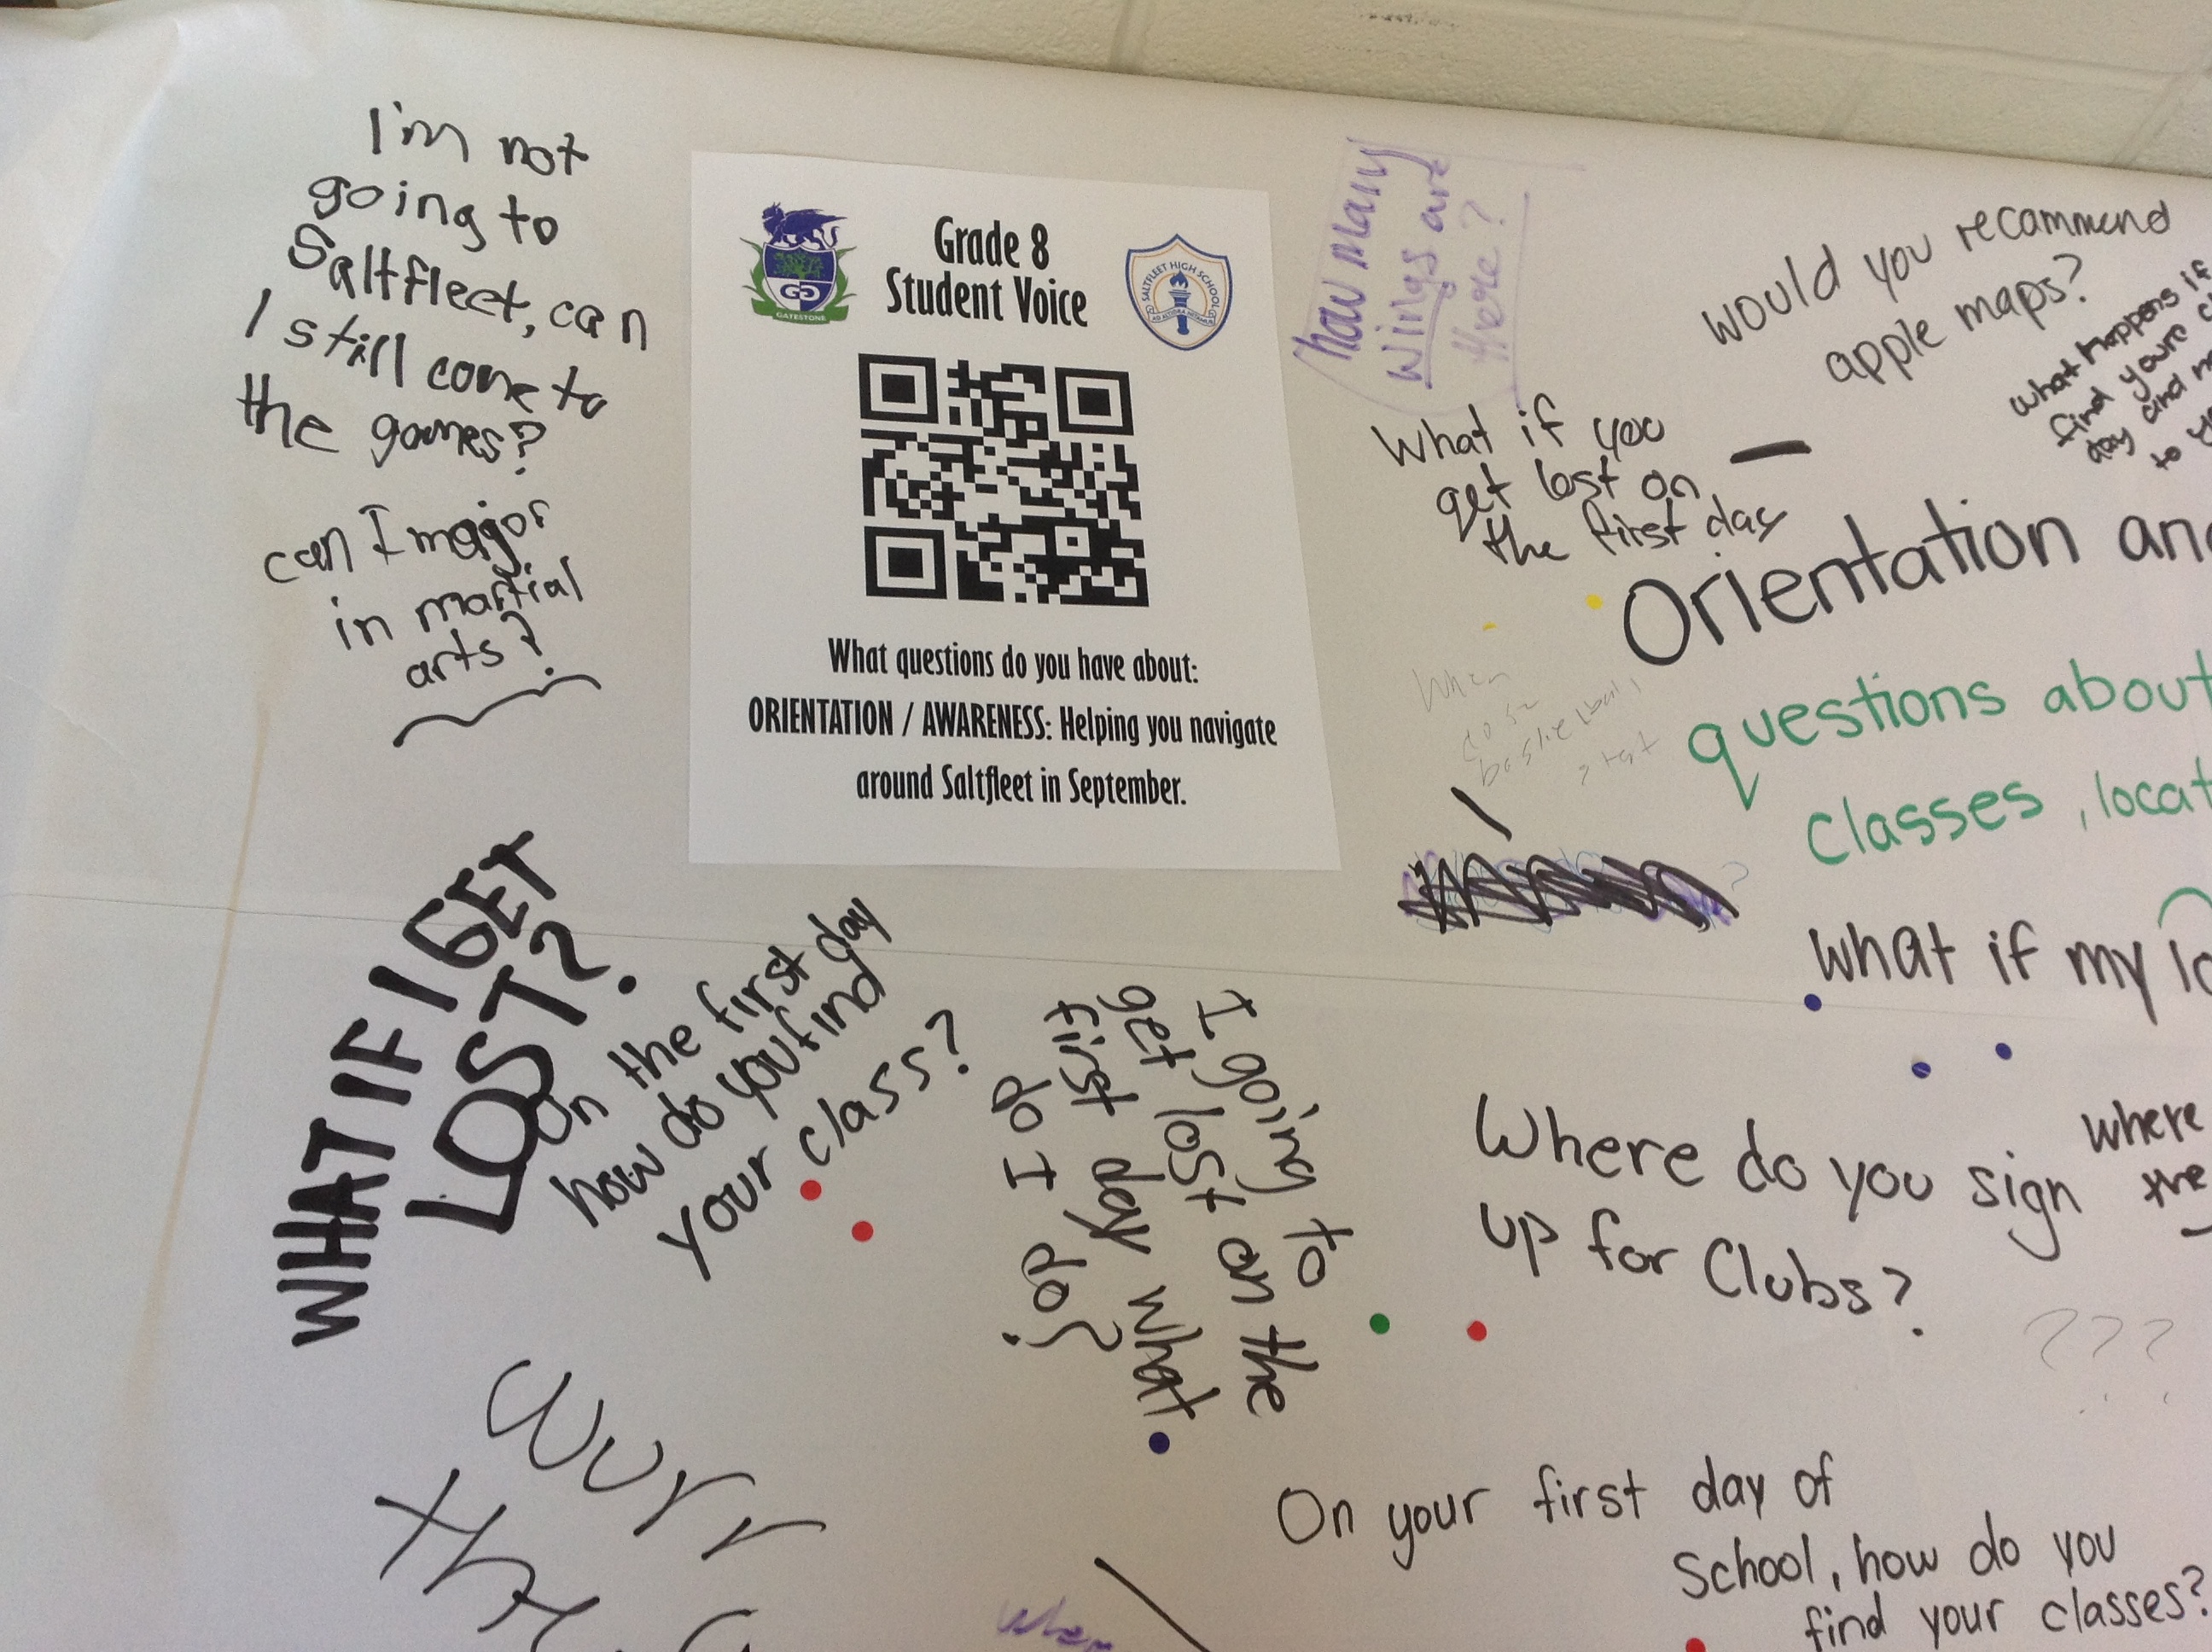 I'm not
going to
Saltfleet, can
I still come to
the games?
can I major
in martial
arts?
Grade 8
Student Voice
GATESTONE
SALTFLEET HIGH SCHOOL
What questions do you have about:
ORIENTATION / AWARENESS: Helping you navigate
around Saltfleet in September.
how many
wings are
there?
would you recommend
apple maps?
what happens if
find youre
day and
to
What if you
get lost on
the first day
Orientation
questions about
classes,
When
basketball
start
what if my
WHAT IF I GET
LOST?
on the first day
how do you find
your class?
I going to
get lost on the
first day what
do I do?
Where do you sign
up for Clubs?
where
the
???
On your first day of
School, how do you
find your classes?
when